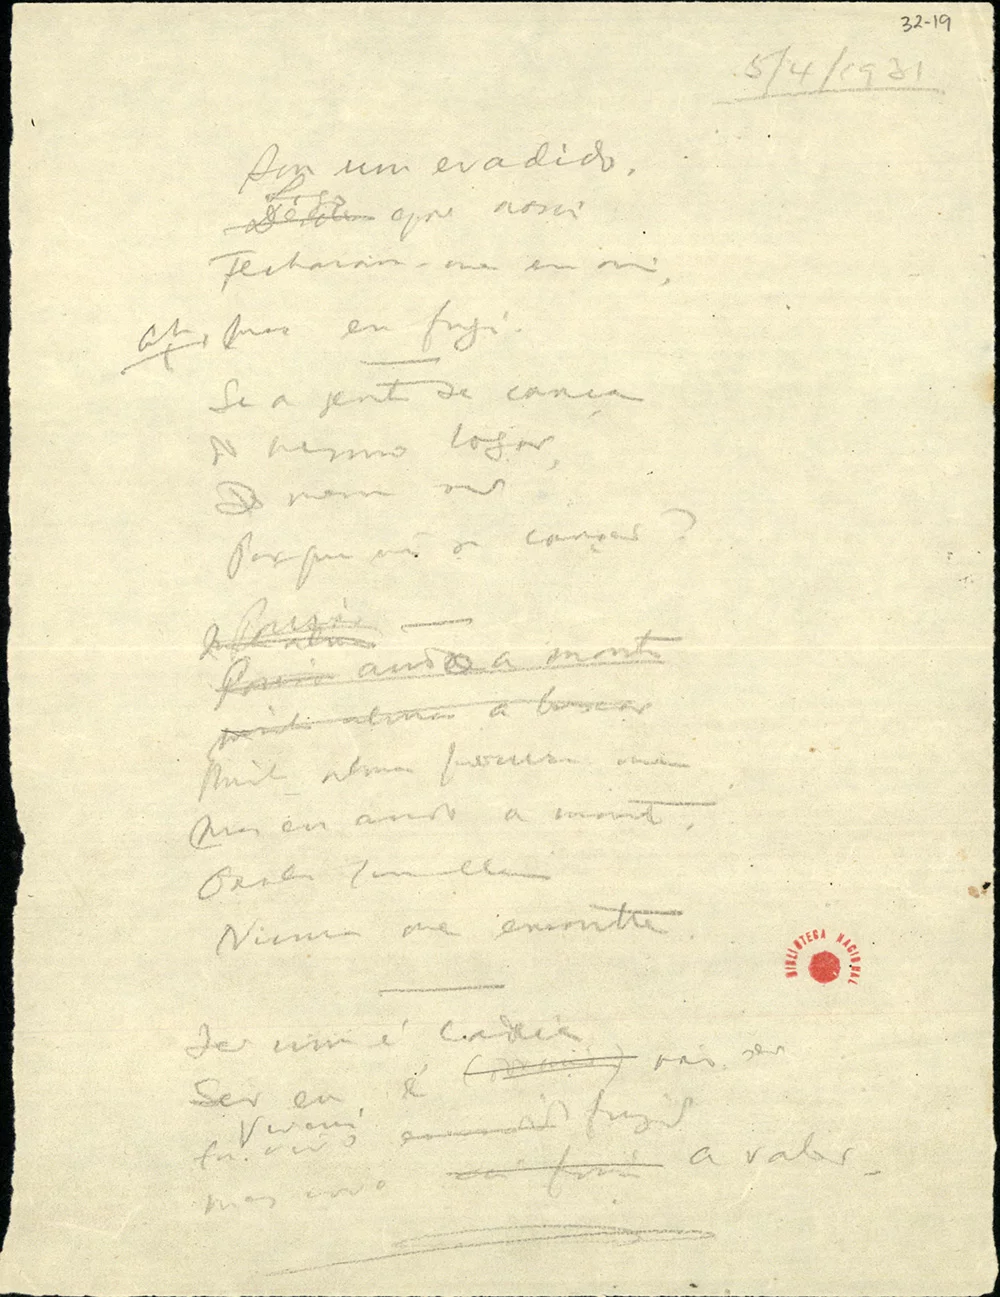 32-19
5/4/1931
Sou um evadido.
Logo
que nasci
Fecharam-me em mim,
Ah, mas eu fugi.
Se a gente se cança
Do mesmo logar,
Do mesmo ser
Porque não se cançar?
ando a monte
minha alma a buscar
Minha alma procura-me
Mas eu ando a monte,
Oxalá que ella
Nunca me encontre.
Ser um é cadeia
Ser eu é não ser
Viverei
Eu vivo fugindo
Mas vivo a valer.
BIBLIOTECA NACIONAL